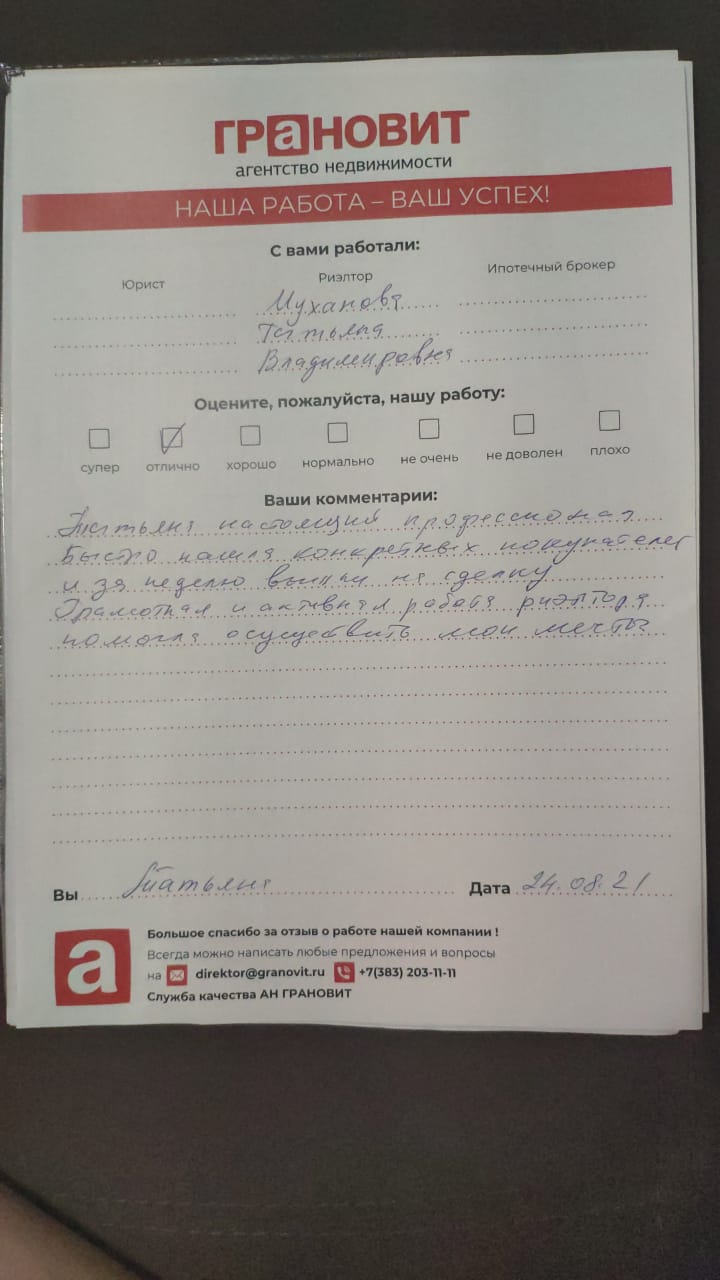 ГРаНОВИТ
агентство недвижимости
НАША РАБОТА – ВАШ УСПЕХ!
С вами работали:
Юрист Риэлтор Ипотечный брокер
Муханова
Татьяна
Владимировна
Оцените, пожалуйста, нашу работу:
супер отлично хорошо нормально не очень не доволен плохо
Ваши комментарии:
Татьяна настоящий профессионал
Быстро нашла конкретных покупателей
и за неделю вышли на сделку
Грамотная и активная работа риэлтора
помогла осуществить мои мечты
Вы Татьяна Дата 24.08.21
а
Большое спасибо за отзыв о работе нашей компании !
Всегда можно написать любые предложения и вопросы
на direktor@granovit.ru +7(383) 203-11-11
Служба качества АН ГРАНОВИТ